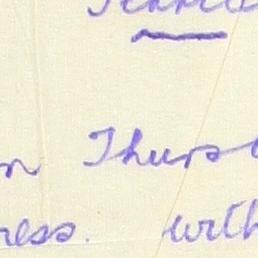 n Thurs
ress. with